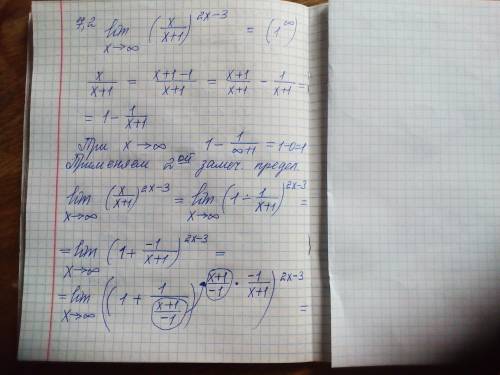 7,2 lim x→∞ (x/(x+1))^(2x−3) = (1^∞)
x/(x+1) = (x+1−1)/(x+1) = (x+1)/(x+1) − 1/(x+1) =
= 1 − 1/(x+1)
При x→∞ 1 − 1/(∞+1) = 1−0=1
Применяем 2ой замеч. предел.
lim x→∞ (x/(x+1))^(2x−3) = lim x→∞ (1 − 1/(x+1))^(2x−3) =
= lim x→∞ (1 + (−1)/(x+1))^(2x−3) =
= lim x→∞ ((1 + 1/((x+1)/(−1)))^((x+1)/(−1) · (−1)/(x+1)))^(2x−3) =